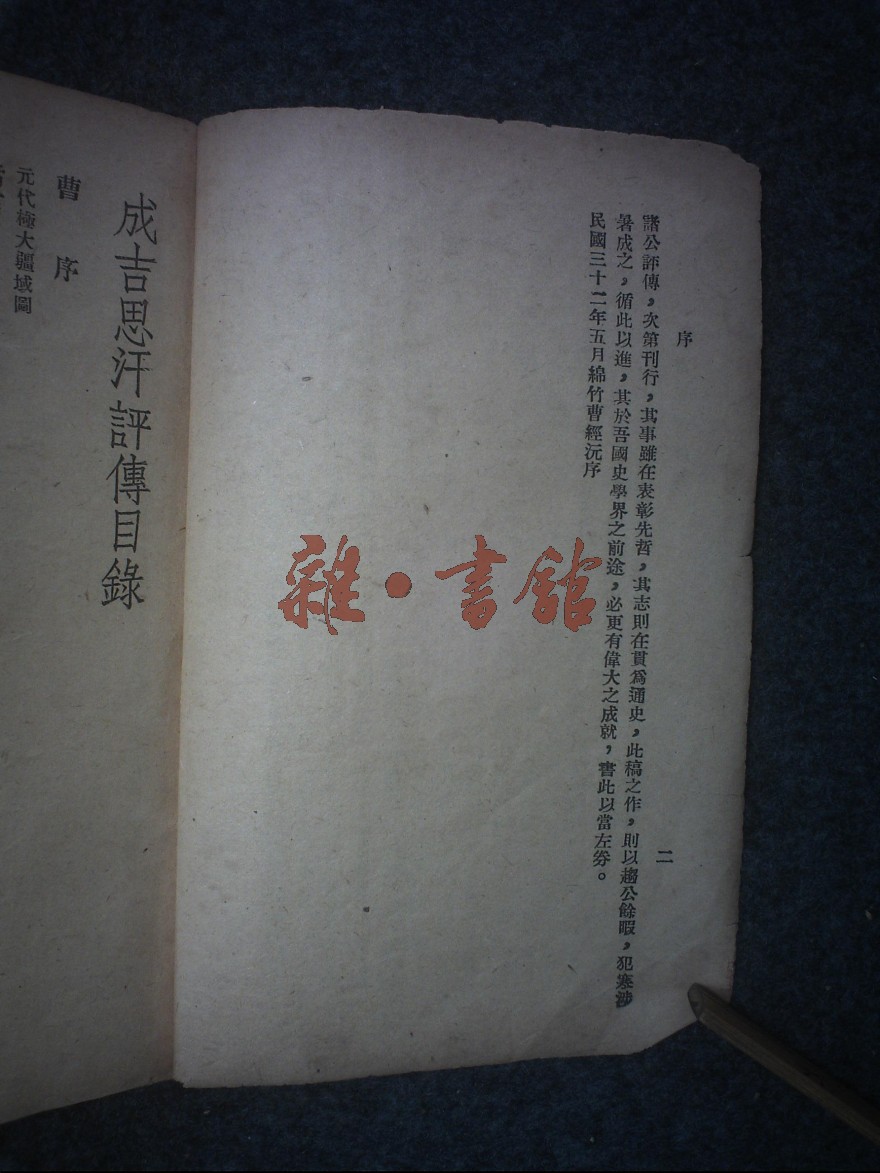 序
二
諸公評傳，次第刊行，其事雖在表彰先哲，其志則在貫為通史，此稿之作，則以趨公餘暇，犯寒涉
暑成之，循此以進，其於吾國史學界之前途，必更有偉大之成就，書此以當左券。
民國三十二年五月綿竹曹經沅序
雜·書館
成吉思汗評傳目錄
曹序
元代極大疆域圖